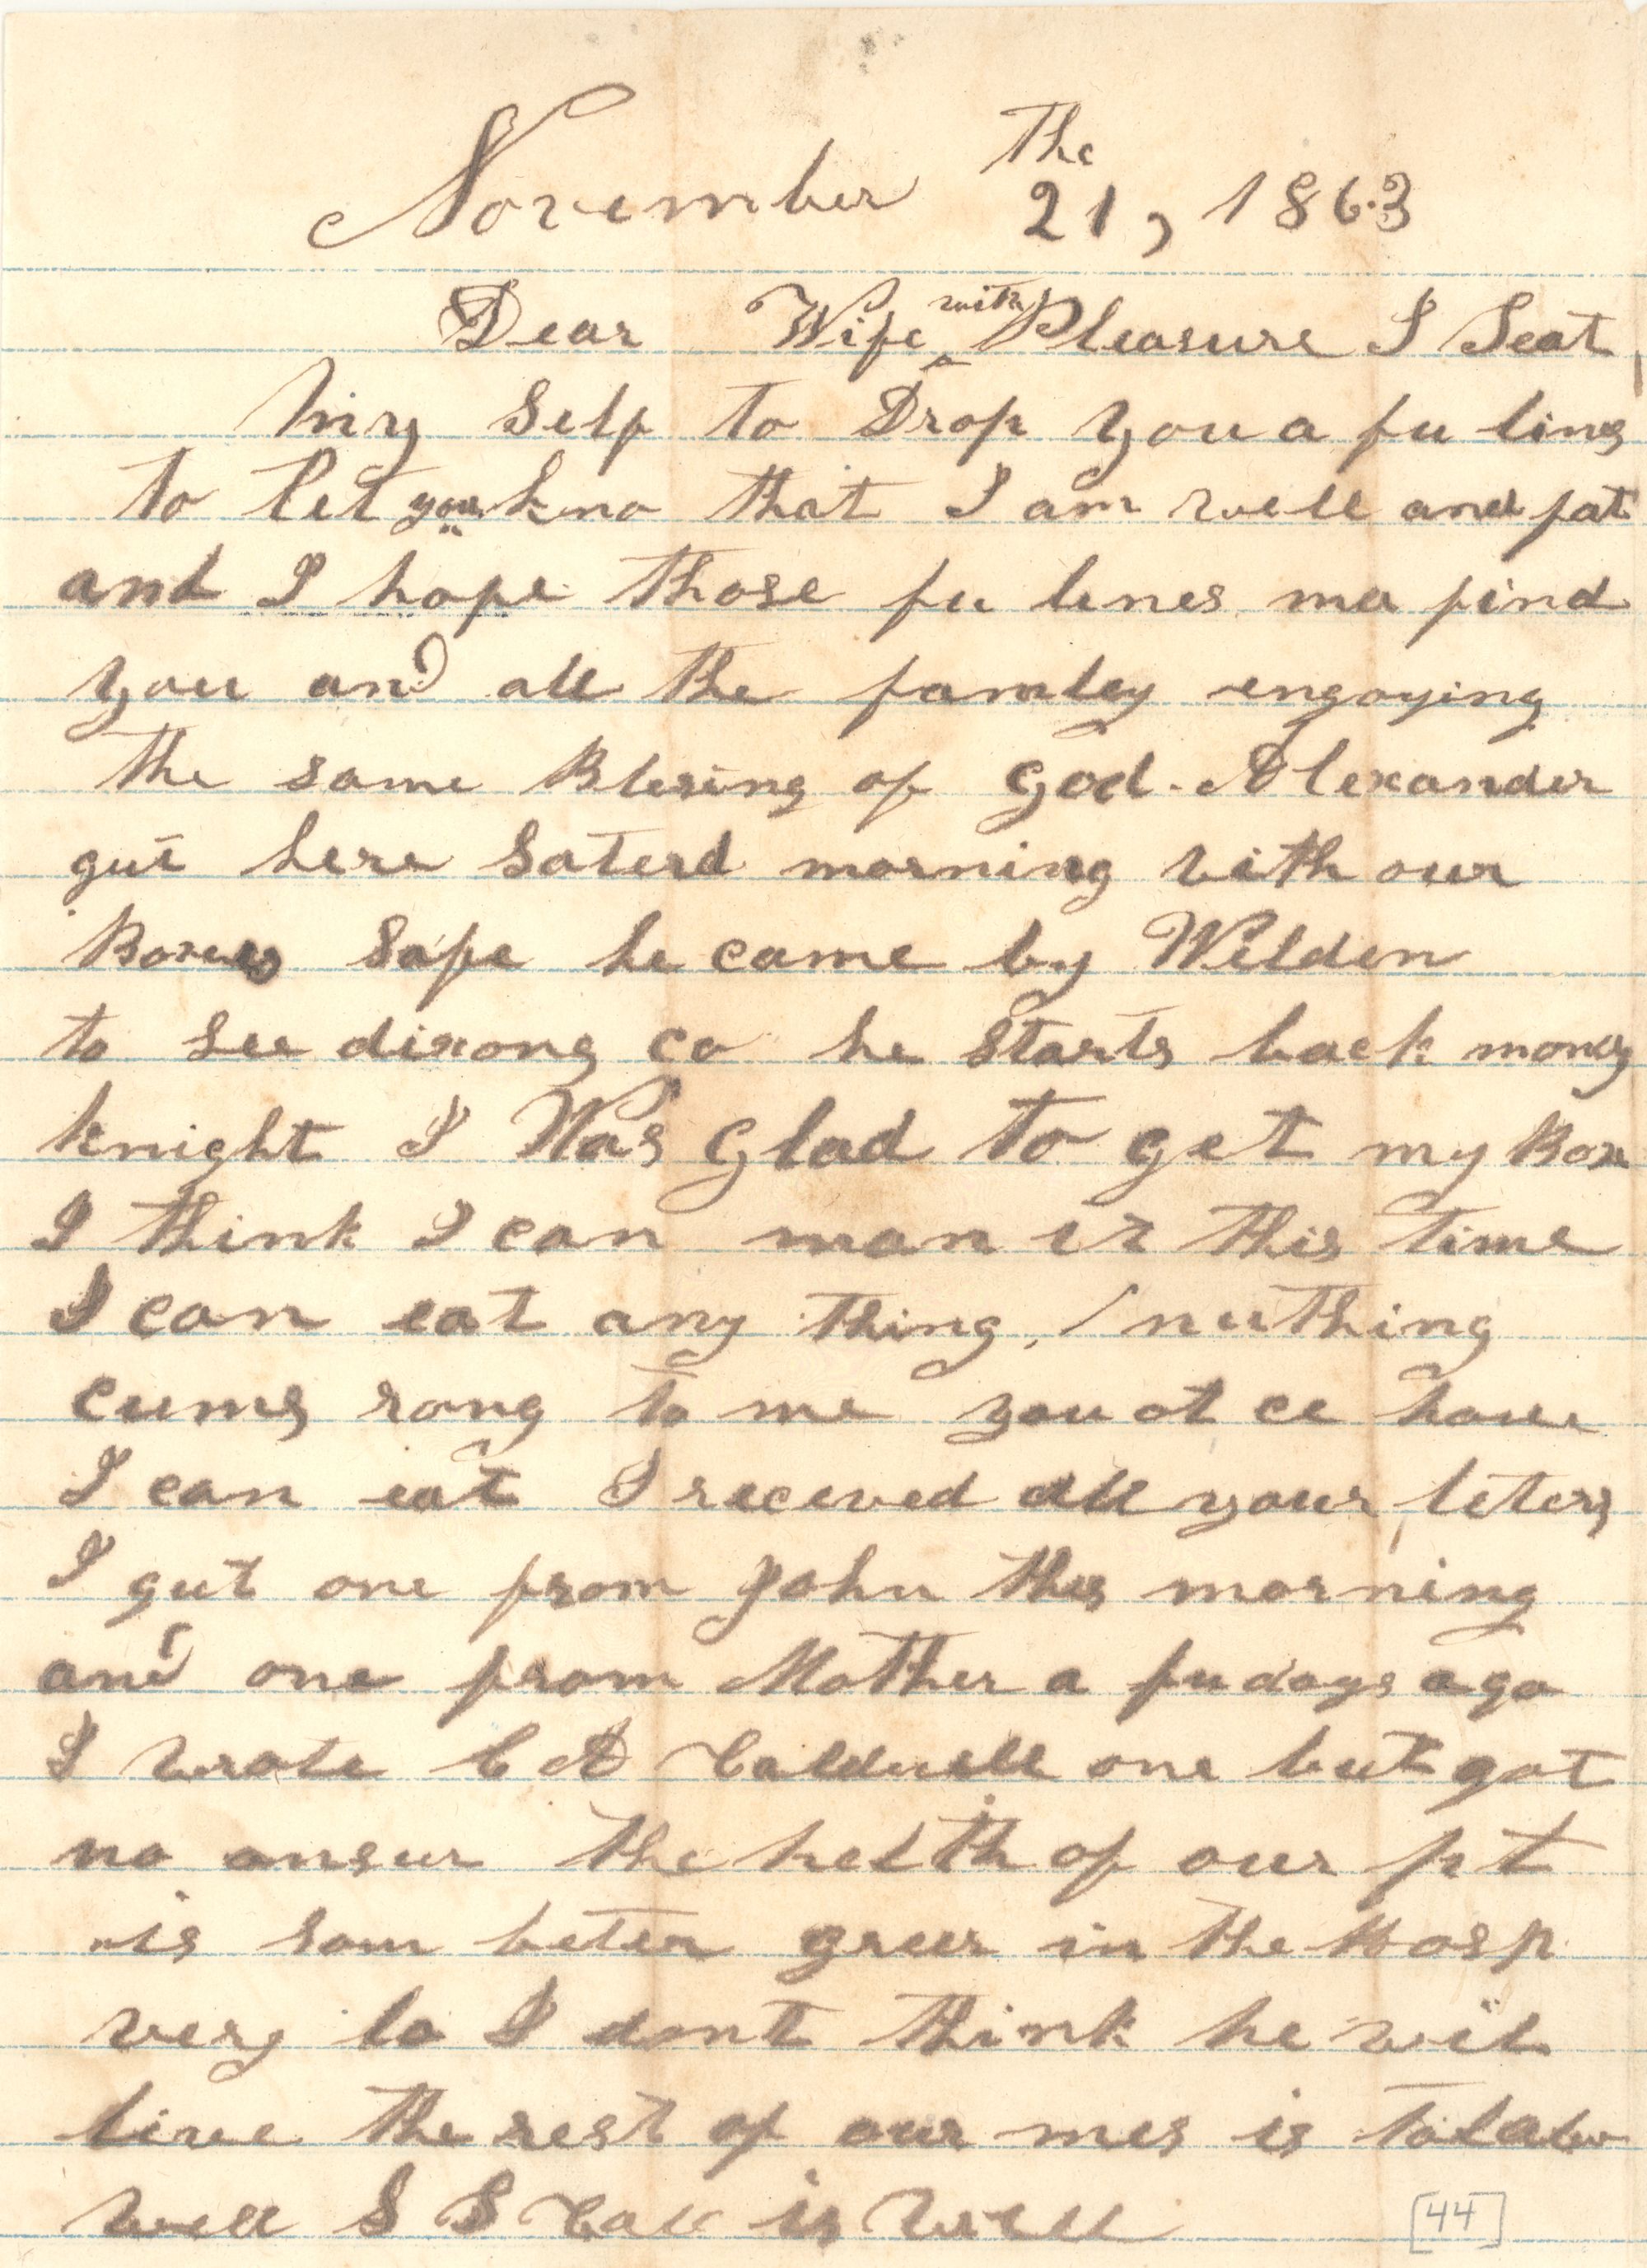 November The 21, 1863
Dear Wife with Pleasure I Seat
my Self to Drop you a fu lins
to let you kno that I am well and fat
and I hope those fu lines ma find
you and all the famley engoying
the same Blesing of god. Alexander
gut here Saterd morning with our
Boxes Safe he came by Weldon
to See dixons co he starts back money
knight I Was glad to get my Box
I think I can man it this time
I can eat any thing, nuthing
cums rong to me you ot ce how
I can eat I receved all your leters
I gut one from John this morning
and one from Mother a fu days ago
I wrote C A Caldwell one but got
no ansur the helth of our rt
is som beter greer in the Hosp
very lo I dont think he wil
live the rest of our mes is tolabw
well S S is well
[44]